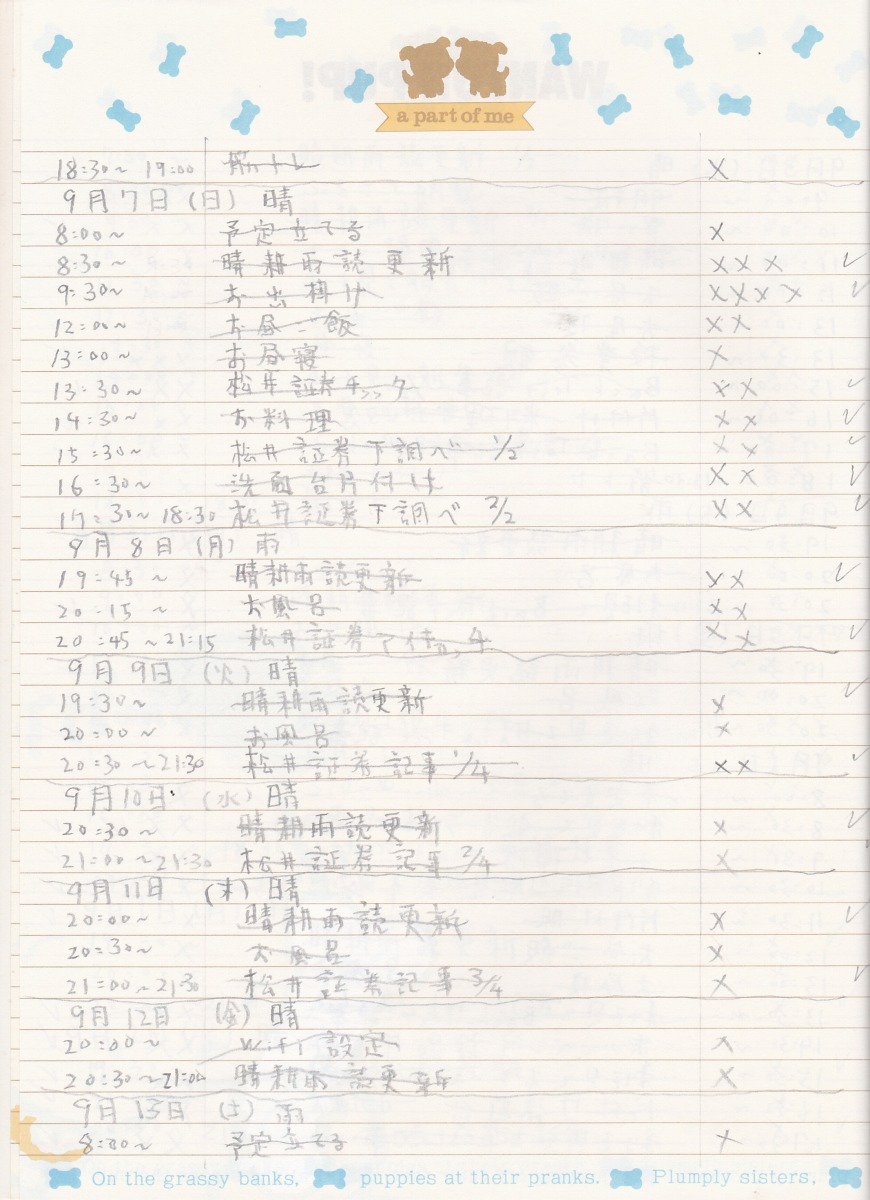 a part of me
18:30~ 19:00 筋トレ ×
9月7日(日) 晴
8:00~ 予定立てる ×
8:30~ 晴耕雨読更新 ××× ✓
9:30~ お出掛け ×××× ✓
12:00~ お昼ご飯 ××
13:00~ お昼寝 ×
13:30~ 松井証券チェック ×× ✓
14:30~ お料理 ×× ✓
15:30~ 松井証券下調べ 1/2 ×× ✓
16:30~ 洗面台片付け ×× ✓
17:30~18:30 松井証券下調べ 2/2 ×× ✓
9月8日(月) 雨
19:45 ~ 晴耕雨読更新 ×× ✓
20:15 ~ お風呂 ××
20:45 ~21:15 松井証券 ×× ✓
9月9日 (火) 晴
19:30~ 晴耕雨読更新 × ✓
20:00 ~ お風呂 ×
20:30 ~21:30 松井証券記事 1/4 ×× ✓
9月10日 (水) 晴
20:30 ~ 晴耕雨読更新 × ✓
21:00~21:30 松井証券記事 2/4 ×
9月11日 (木) 晴
20:00~ 晴耕雨読更新 × ✓
20:30~ お風呂 ×
21:00~21:30 松井証券記事 3/4 × ✓
9月12日 (金) 晴
20:00~ Wifi 設定 ×
20:30~21:00 晴耕雨読更新 ×
9月13日 (土) 雨
8:30~ 予定立てる ×
On the grassy banks, puppies at their pranks. Plumply sisters,